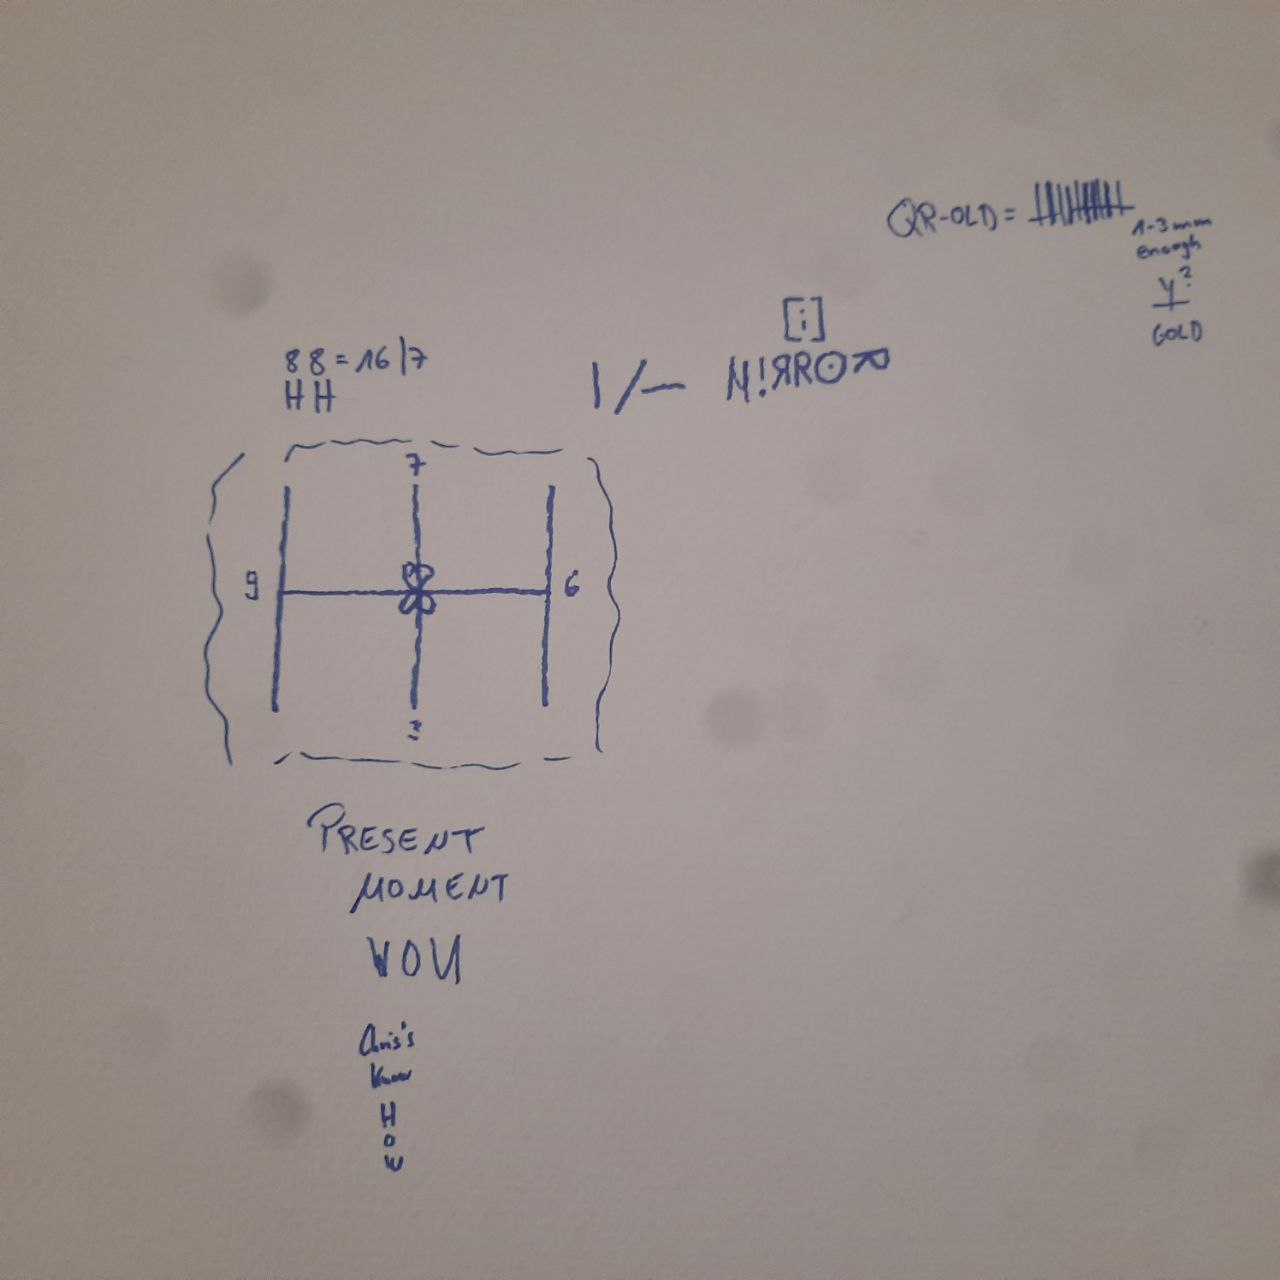 QR-OLD =
1-3mm
enough
y?
GOLD
[i]
M!RROR
88=16/7
HH
1/—
7
9
6
3
PRESENT
MOMENT
Chris's
Know
H
O
W